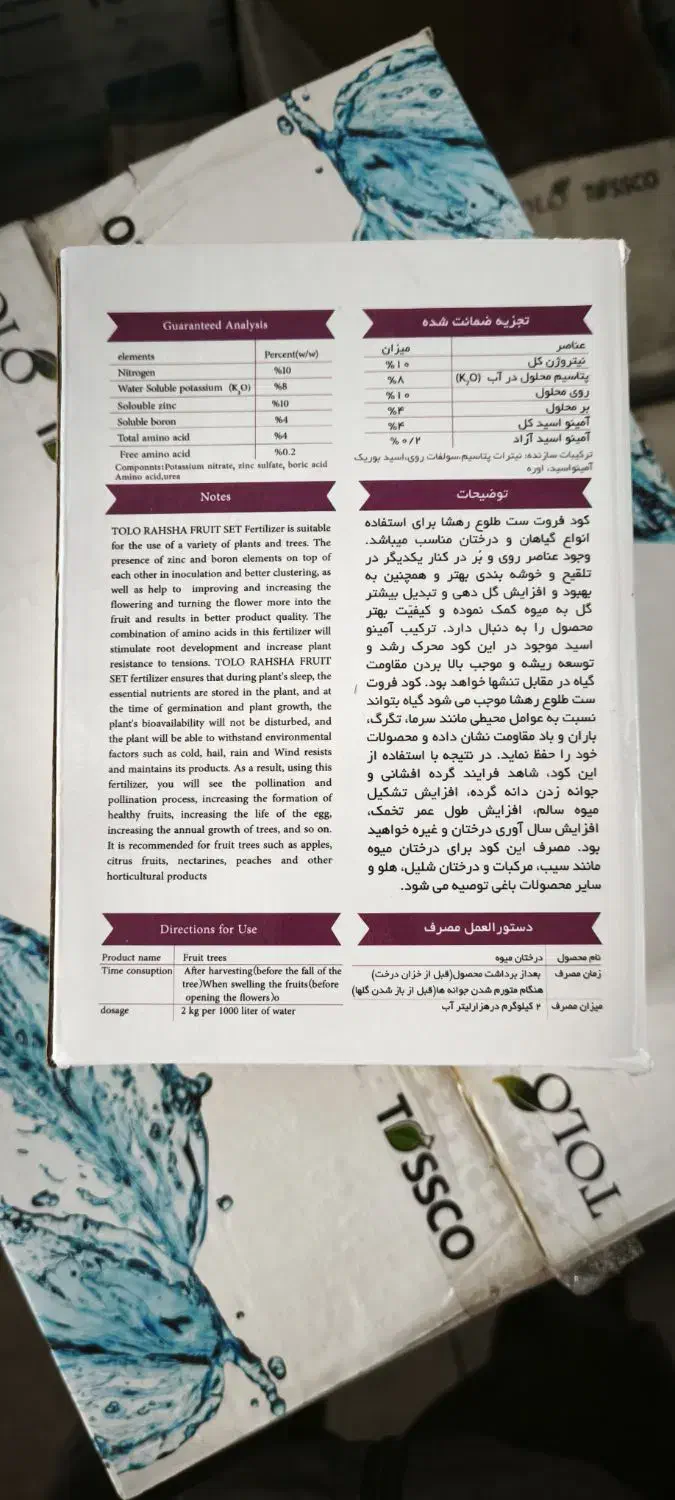 TOLO TOSSCO
Guaranteed Analysis
elements Percent(w/w)
Nitrogen %10
Water Soluble potassium (K₂O) %8
Solouble zinc %10
Soluble boron %4
Total amino acid %4
Free amino acid %0.2
Componnts:Potassium nitrate, zinc sulfate, boric acid
Amino acid,urea
Notes
TOLO RAHSHA FRUIT SET Fertilizer is suitable
for the use of a variety of plants and trees. The
presence of zinc and boron elements on top of
each other in inoculation and better clustering, as
well as help to improving and increasing the
flowering and turning the flower more into the
fruit and results in better product quality. The
combination of amino acids in this fertilizer will
stimulate root development and increase plant
resistance to tensions. TOLO RAHSHA FRUIT
SET fertilizer ensures that during plant's sleep, the
essential nutrients are stored in the plant, and at
the time of germination and plant growth, the
plant's bioavailability will not be disturbed, and
the plant will be able to withstand environmental
factors such as cold, hail, rain and Wind resists
and maintains its products. As a result, using this
fertilizer, you will see the pollination and
pollination process, increasing the formation of
healthy fruits, increasing the life of the egg,
increasing the annual growth of trees, and so on.
It is recommended for fruit trees such as apples,
citrus fruits, nectarines, peaches and other
horticultural products
Directions for Use
Product name Fruit trees
Time consuption After harvesting(before the fall of the
tree)When swelling the fruits(before
opening the flowers)o
dosage 2 kg per 1000 liter of water
تجزیه ضمانت شده
عناصر میزان
نیتروژن کل %۱۰
پتاسیم محلول در آب (K₂O) %۸
روی محلول %۱۰
بر محلول %۴
آمینو اسید کل %۴
آمینو اسید آزاد %۰/۲
ترکیبات سازنده: نیترات پتاسیم،سولفات روی،اسید بوریک
آمینواسید، اوره
توضیحات
کود فروت ست طلوع رهشا برای استفاده
انواع گیاهان و درختان مناسب میباشد.
وجود عناصر روی و بُر در کنار یکدیگر در
تلقیح و خوشه بندی بهتر و همچنین به
بهبود و افزایش گل دهی و تبدیل بیشتر
گل به میوه کمک نموده و کیفیت بهتر
محصول را به دنبال دارد. ترکیب آمینو
اسید موجود در این کود محرک رشد و
توسعه ریشه و موجب بالا بردن مقاومت
گیاه در مقابل تنشها خواهد بود. کود فروت
ست طلوع رهشا موجب می شود گیاه بتواند
نسبت به عوامل محیطی مانند سرما، تگرگ،
باران و باد مقاومت نشان داده و محصولات
خود را حفظ نماید. در نتیجه با استفاده از
این کود، شاهد فرایند گرده افشانی و
جوانه زدن دانه گرده، افزایش تشکیل
میوه سالم، افزایش طول عمر تخمک،
افزایش سال آوری درختان و غیره خواهید
بود. مصرف این کود برای درختان میوه
مانند سیب، مرکبات و درختان شلیل، هلو و
سایر محصولات باغی توصیه می شود.
دستورالعمل مصرف
نام محصول درختان میوه
زمان مصرف بعداز برداشت محصول(قبل از خزان درخت)
هنگام متورم شدن جوانه ها(قبل از باز شدن گلها)
میزان مصرف ۲ کیلوگرم درهزارلیتر آب
TOSSCO
TOLO